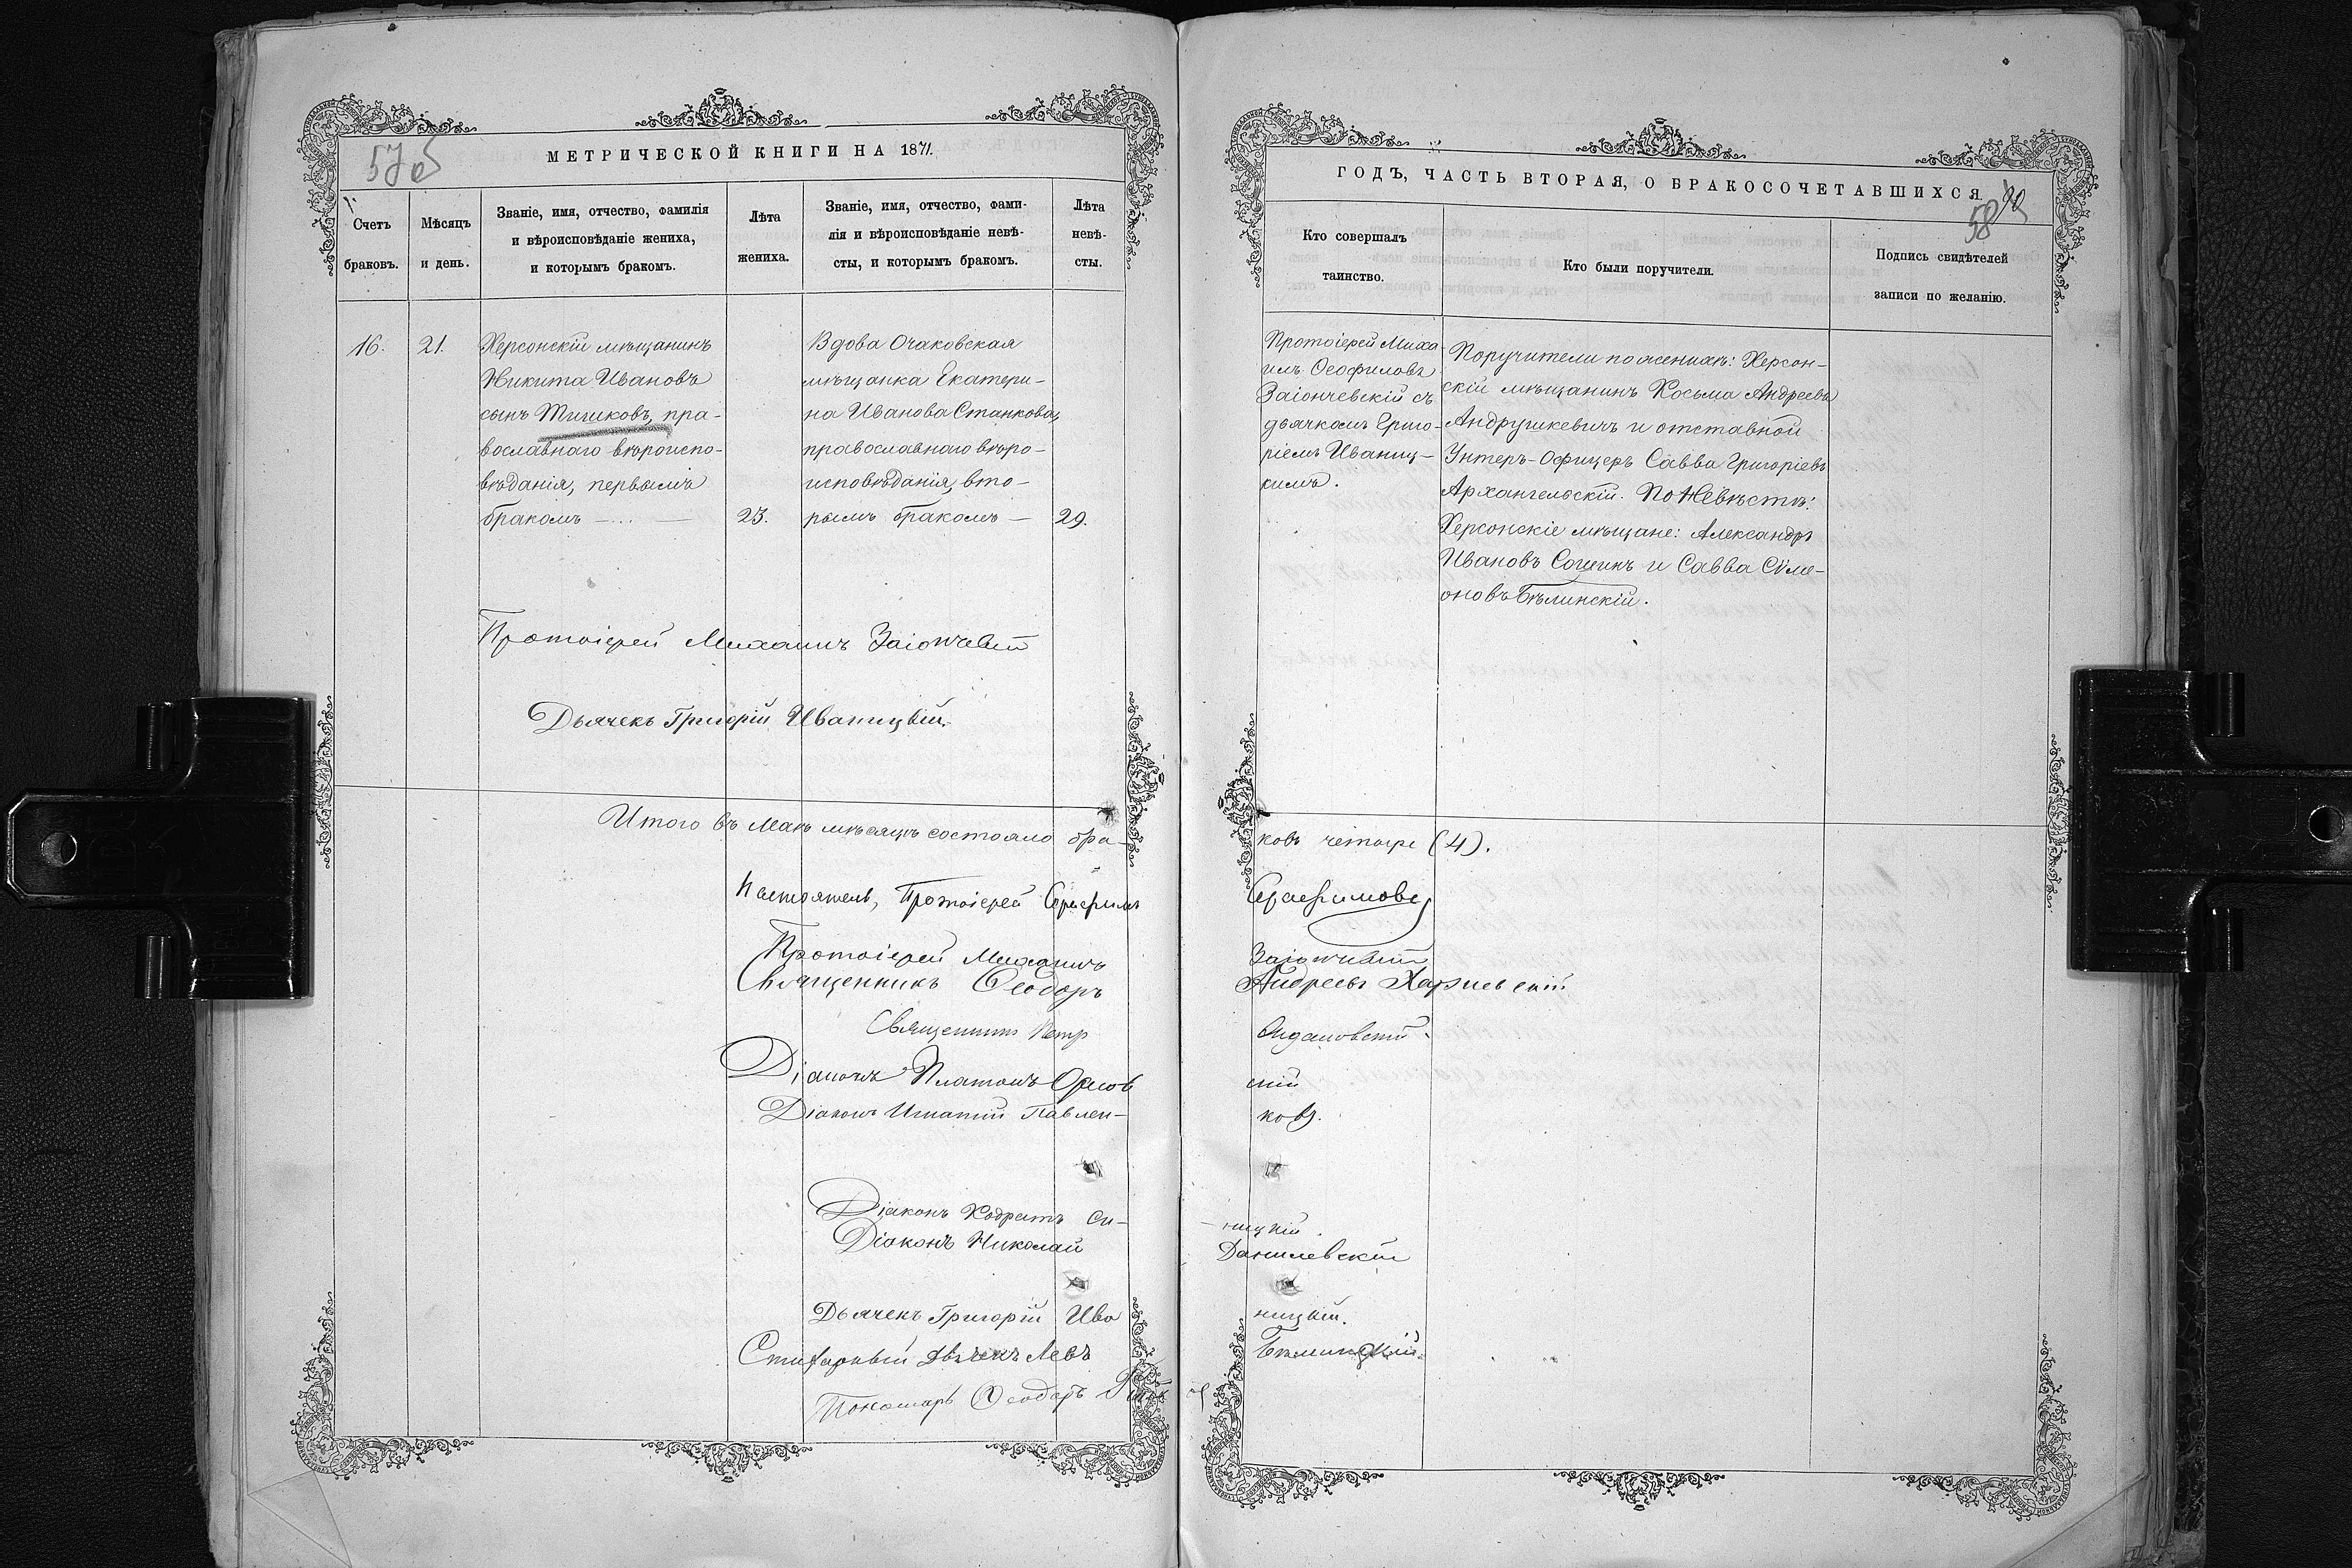 57об
МЕТРИЧЕСКОЙ КНИГИ НА 1871.
Счетъ браковъ.
Мѣсяцъ и день.
Званіе, имя, отчество, фамилія
и вѣроисповѣданіе жениха,
и которымъ бракомъ.
Лѣта
жениха.
Званіе, имя, отчество, фами-
лія и вѣроисповѣданіе невѣ-
сты, и которымъ бракомъ.
Лѣта
невѣ-
сты.
16.
21.
Херсонскій мѣщанинъ
Никита Ивановъ
сынъ Тишковъ, пра-
вославнаго вѣроиспо-
вѣданія, первымъ
бракомъ
23.
Вдова Очаковская
мѣщанка Екатери-
на Иванова Станкова,
православнаго вѣро-
исповѣданія, вто-
рымъ бракомъ —
29.
Протоіерей Михаилъ Заіончевскій
Дьячекъ Григорій Иваницкій.
Итого въ Маѣ мѣсяцѣ состояло бра-
Настоятель, Протоіерей Серафимъ
Протоіерей Михаилъ
Священникъ Ѳеодоръ
Священникъ Петр
Діаконъ Платонъ
Діаконъ Игнатій Павлен-
Діаконъ Кодратъ Си-
Діаконъ Николай
Дьячекъ Григорій Ива
Стихарный Дьячекъ Левъ
Пономарь Ѳеодоръ
ГОДЪ, ЧАСТЬ ВТОРАЯ, О БРАКОСОЧЕТАВШИХСЯ
58
Кто совершалъ
таинство.
Кто были поручители.
Подпись свидѣтелей
записи по желанію.
Протоіерей Миха-
илъ Ѳеофиловъ
Заіончевскій съ
дьячкомъ Григо-
ріемъ Иваниц-
кимъ.
Поручители по женихѣ: Херсон-
скій мѣщанинъ Косьма Андреевъ
Андрушкевичъ и отставной
Унтеръ-Офицеръ Савва Григоріевъ
Архангельскій. По Невѣстѣ:
Херсонскіе мѣщане: Александръ
Ивановъ Сошинъ и Савва Сѵме-
оновъ Бѣлинскій.
ковъ четыре (4).
Серафимовъ
Заіончевскій
Андреевъ Харжевскій
скій
ковъ.
ницкій.
Данилевскій
ницкій.
Бѣлинскій.